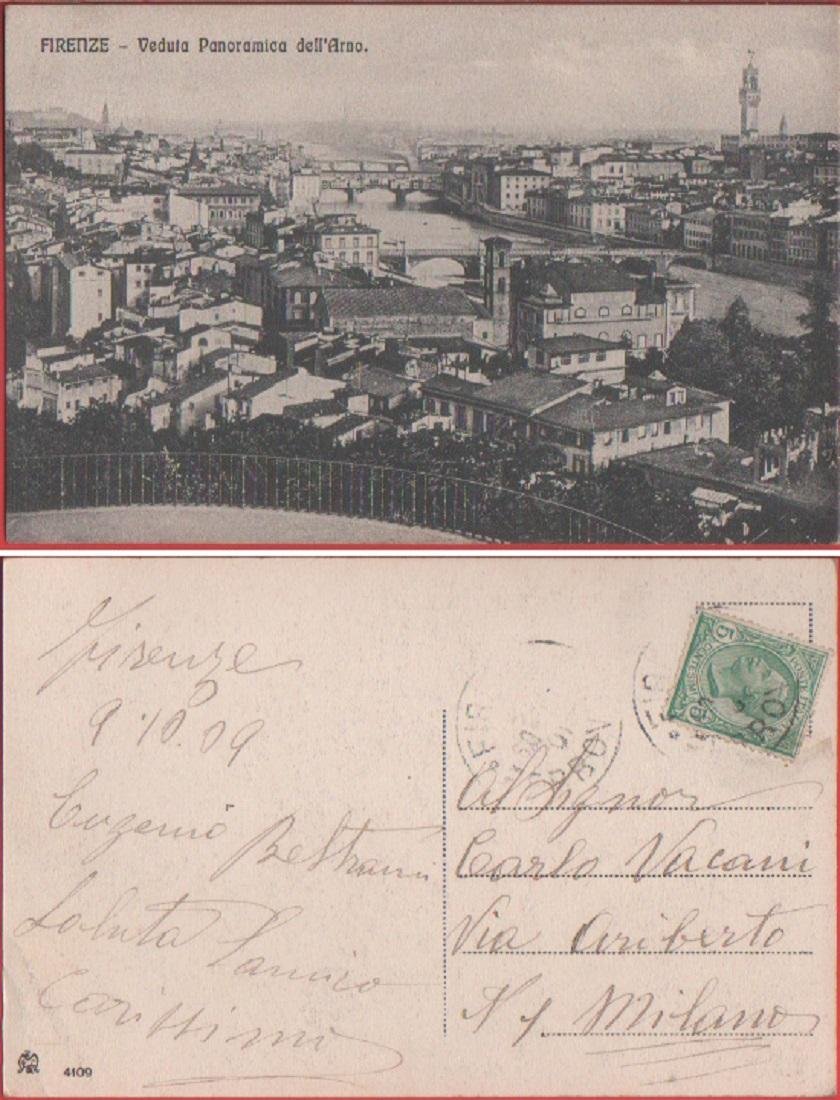 FIRENZE - Veduta Panoramica dell'Arno.
Firenze
9.10.09
Eugenio Beltrami
Saluta l'amico
Carissimo
Al Signor
Carlo Vacani
Via Ariberto
N 1. Milano
4109
5